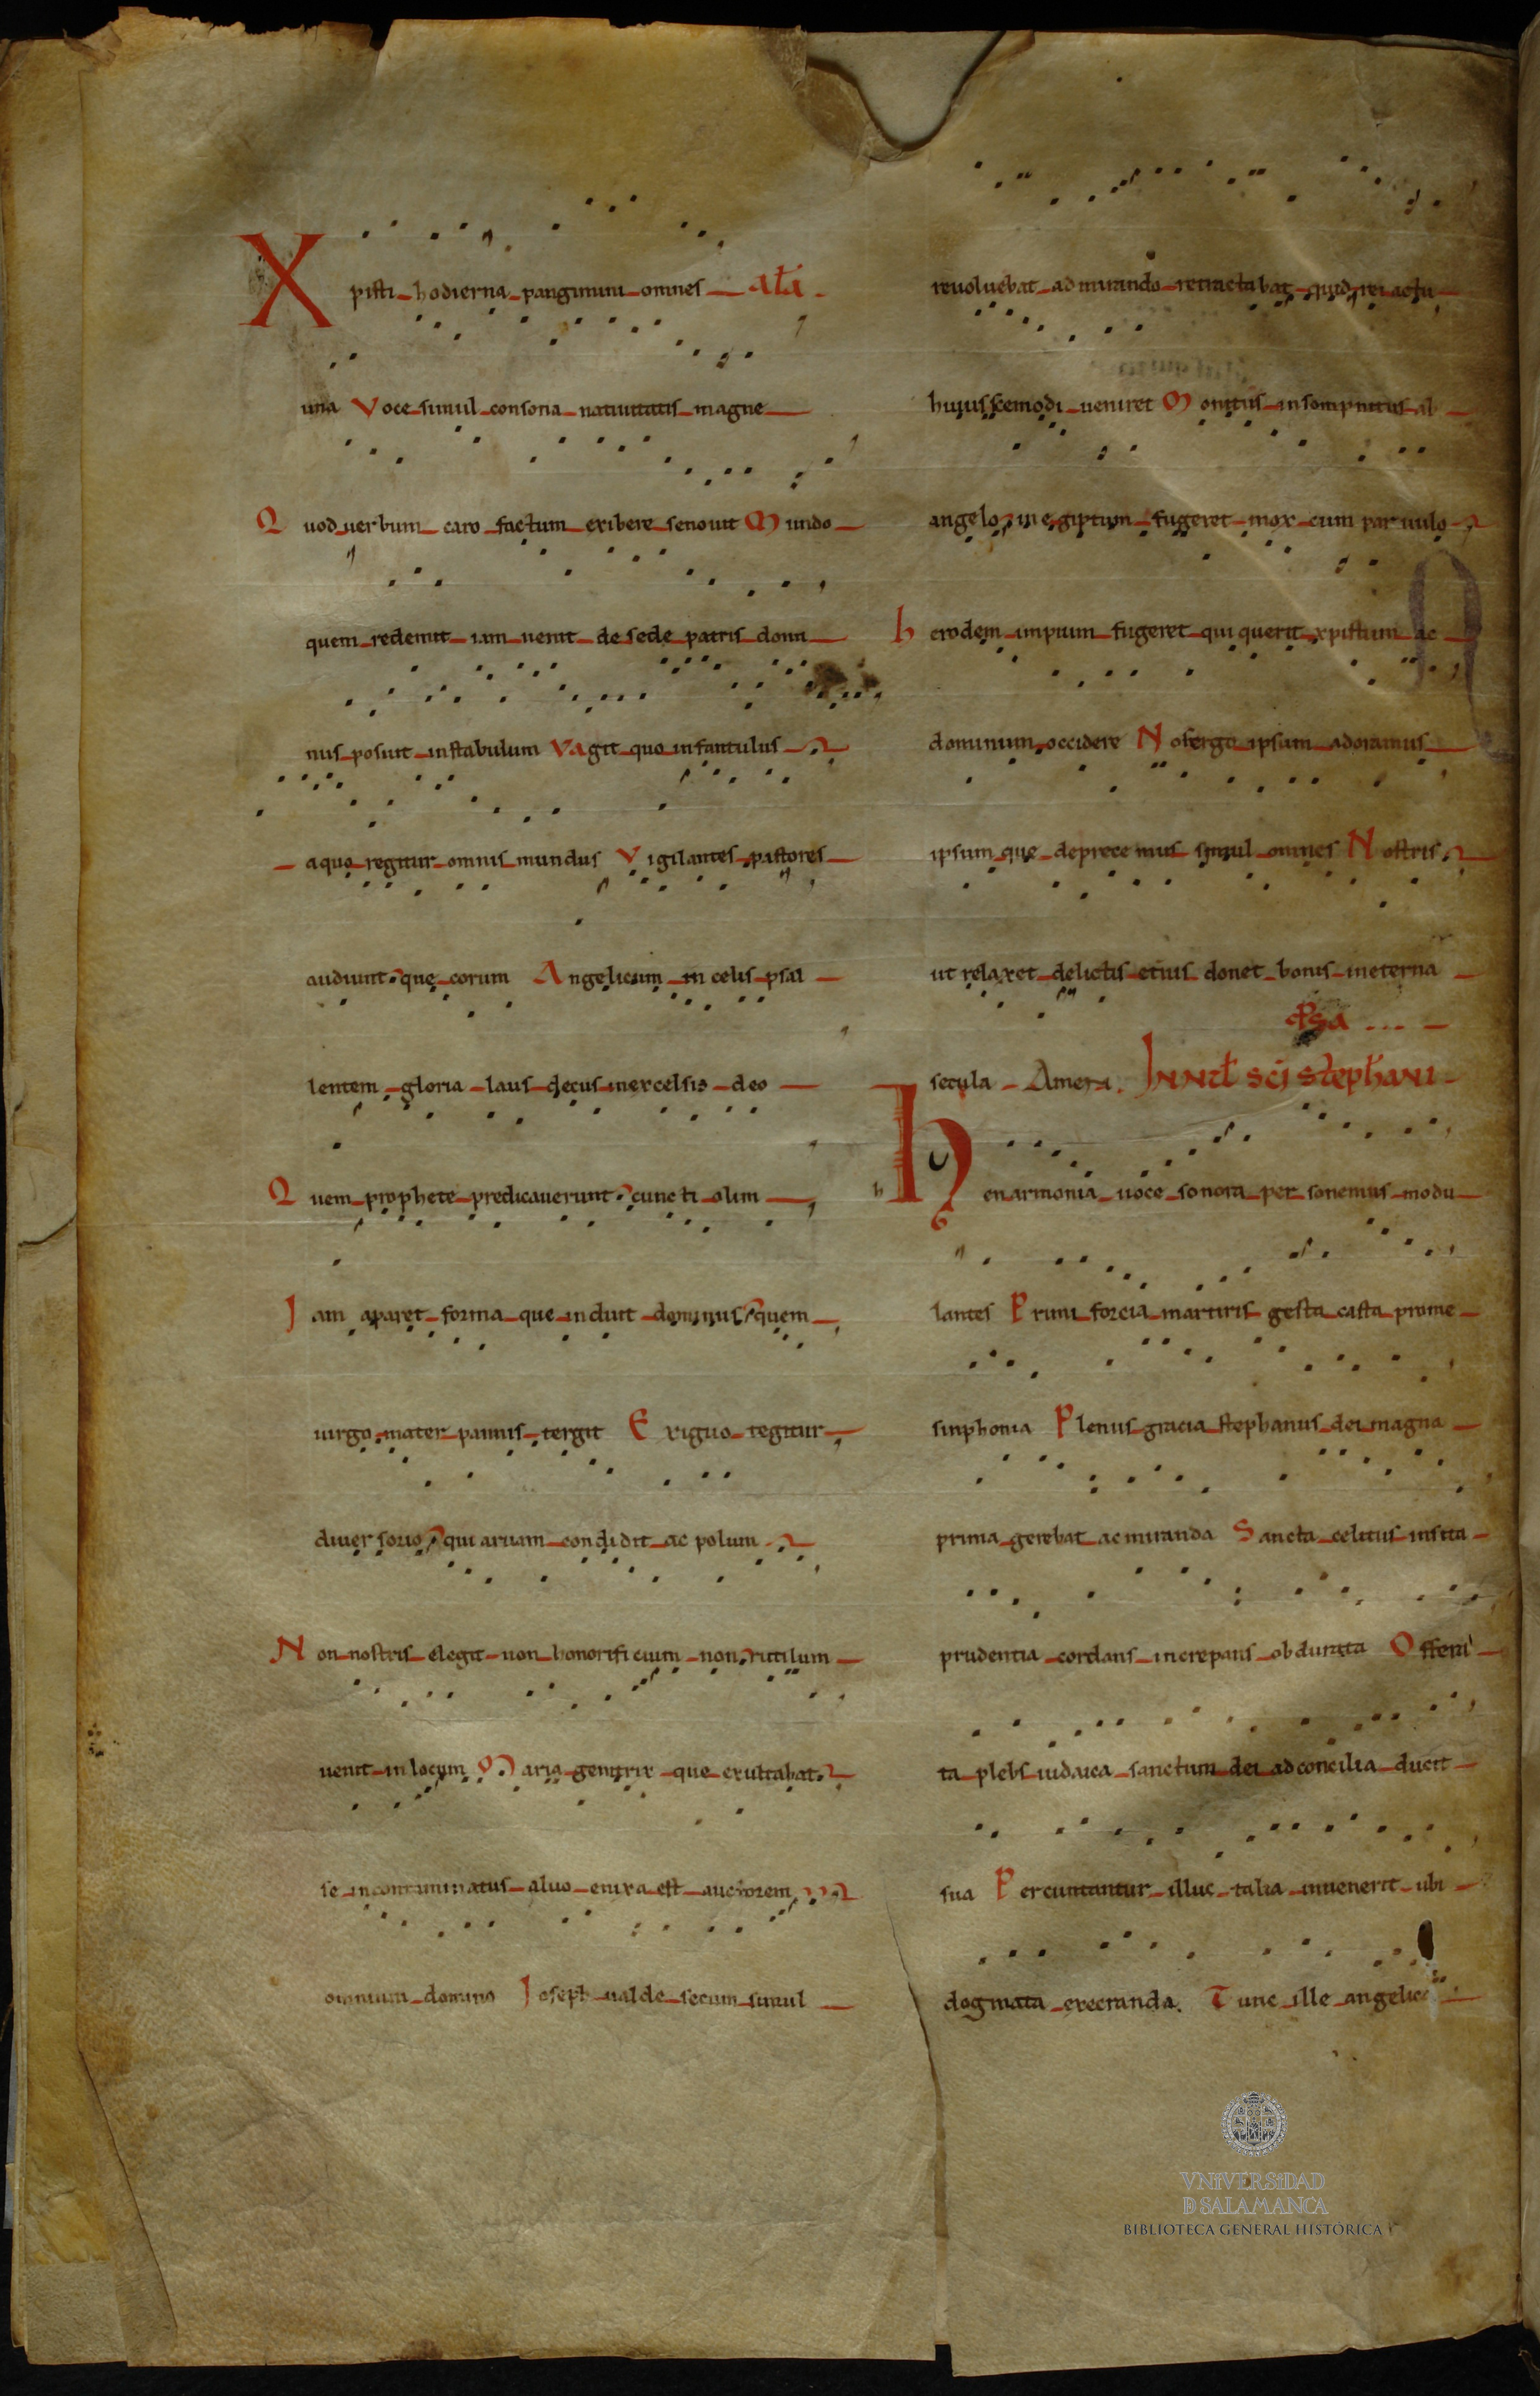 Xpisti hodierna pangimini omnes atā
una Voce simul consona natiuitatis magne
Quod uerbum caro factum exibere se nouit Mundo
quem redemit iam uenit de sede patris domi
nus posuit in stabulum Vagit quo infantulus
a quo regitur omnis mundus Vigilantes pastores
audiunt que corum Angelicum in celis psal
lentem gloria laus decus in excelsis deo
Quem prophete predicauerunt cuncti olim
Jam aparet forma que induit dominus quem
uirgo mater pannis tergit Exiguo tegitur
diuersorio qui aruam condidit ac polum
Non nostris elegit non honorificium non rutilum
uenit in locum Maria genitrix que exultabat
se incontaminatus aluo enixa est auctorem
omnium domino Joseph ualde secum simul
reuoluebat ad mirando retractabat quid rei actu
hujuscemodi ueniret Monitus in sompnitus ab
angelo in egiptum fugeret mox cum paruulo
herodem impium fugeret qui querit xpistum ac
dominum occidere Nos ergo ipsum adoramus
ipsum que deprecemus simul omnes Nostris
ut relaxet delictis et uis donet bonis in eterna
secula Amen. Psa
Jn nāt scī stephani
henarmonia uoce sonora per sonemus modu
lantes Primi forcia martiris gesta casta prome
sinphonia Plenus gracia stephanus dei magna
prima gerebat ac miranda Sancta celitus insita
prudentia cordans increpans obdurata Offeni
ta plebs iudaica sanctum dei ad concilia ducit
sua Percuntantur illuc talia inuenerit ubi
dogmata execranda. Tunc ille angelic
VNIVERSIDAD
D SALAMANCA
BIBLIOTECA GENERAL HISTÓRICA